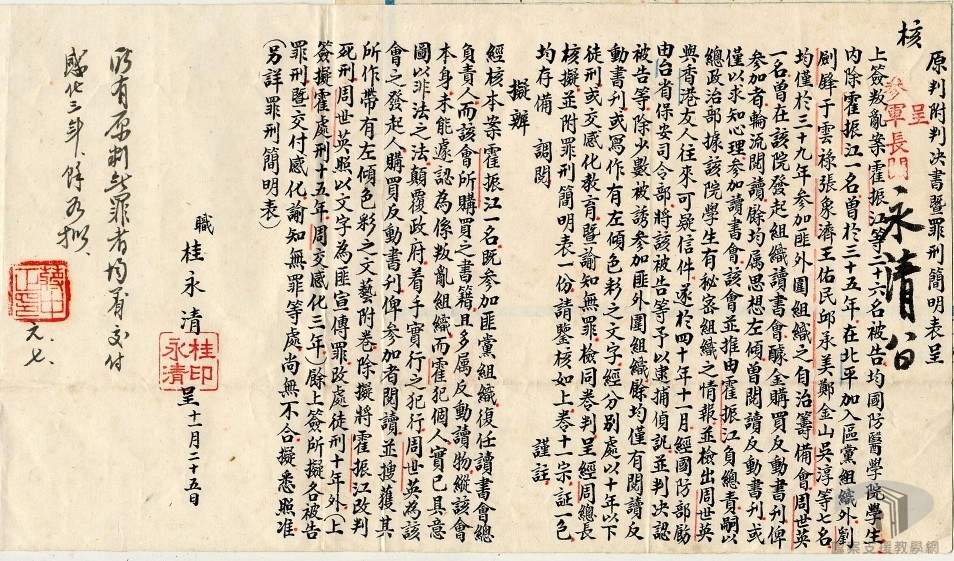 核
原判附判決書暨罪刑簡明表呈
呈
參軍長閱
永清
上簽叛亂案霍振江等二十六名被告均國防醫學院學生
內除霍振江一名曾於三十五年在北平加入區黨組織外劉
劍鋅于雲祿張象濟王佑民邱承美鄭金山吳淳等七名
均僅於三十九年參加匪外圍組織之自治籌備會周世英
一名曾在該院發起組織讀書會釀金購買反動書刊俾
參加者輪流閱讀餘均屬思想左傾曾閱讀反動書刊或
僅以求知心理參加讀書會該會並推由霍振江負總責嗣以
總政治部據該院學生有秘密組織之情報並檢出周世英
與香港友人往來可疑信件遂於四十年十一月經國防部勵
由台省保安司令部將該被告等予以逮捕偵訊並判決認
被告等除少數被誘參加匪外圍組織餘均僅有閱讀反
動書刊或寫作有左傾色彩之文字經分別處以十年以下
徒刑或交感化教育暨諭知無罪檢同卷判呈經周總長
核擬並附罪刑簡明表一份請鑒核如上卷十一宗証一包
均存備 調閱 謹註
擬辦
經核本案霍振江一名既參加匪黨組織復任讀書會總
負責人而該會所購買之書籍且多屬反動讀物縱該會
本身未能遽認為係叛亂組織而霍犯個人實已具意
圖以非法之法顛覆政府着手實行之犯行周世英為該
會之發起人購買反動書刊俾參加者閱讀並搜獲其
所作帶有左傾色彩之文藝附卷除擬將霍振江改判
死刑周世英照以文字為匪宣傳罪改處徒刑十年外(上
簽擬霍處刑十五年周交感化三年)餘上簽所擬各被告
罪刑暨交付感化諭知無罪等處尚無不合擬悉照准
(另詳罪刑簡明表)
職 桂永清 呈 十一月二十五日
桂永清印
所有原判無罪者均着交付
感化三年、餘如擬、
蔣中正印
元.七.
檔案支援教學網